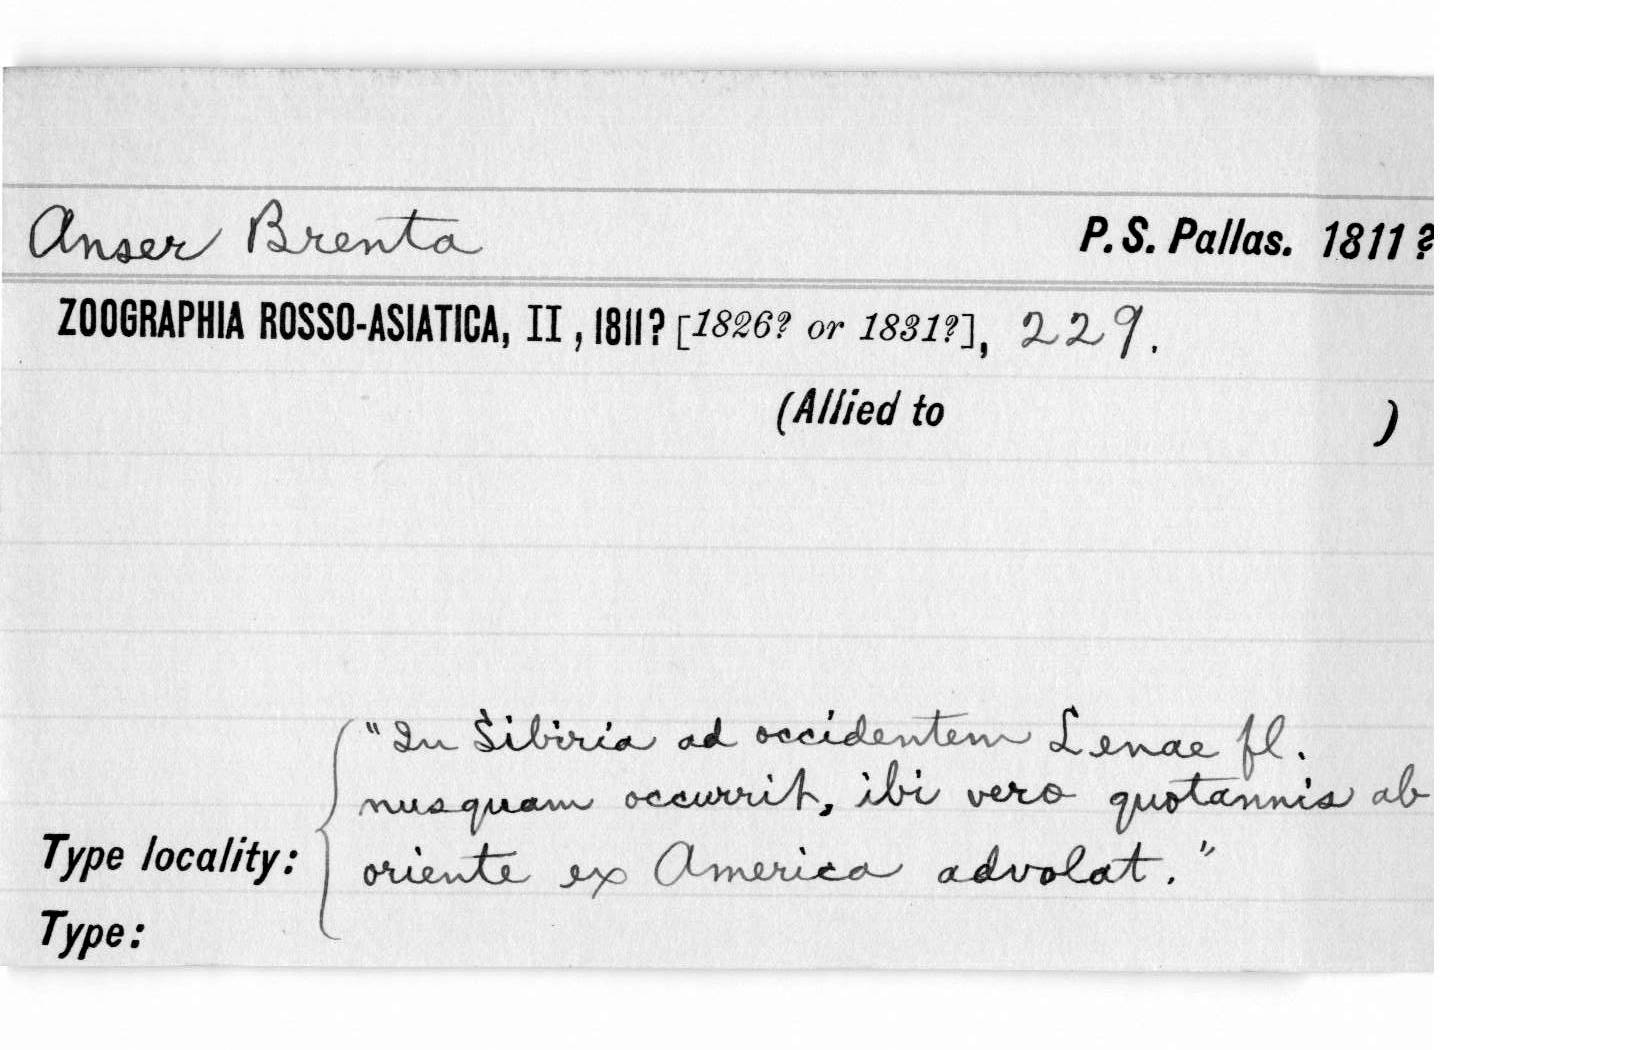 Anser Brenta P. S. Pallas. 1811?
ZOOGRAPHIA ROSSO-ASIATICA, II, 1811? [1826? or 1831?], 229.
(Allied to )
"In Sibiria ad occidentem Lenae fl.
nusquam occurrit, ibi vero quotannis ab
oriente ex America advolat."
Type locality:
Type: